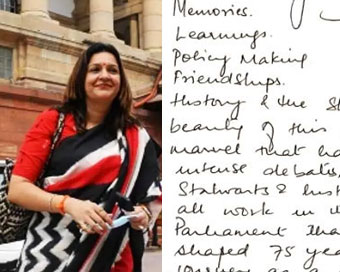 Memories.
Learnings.
Policy Making
Friendships.
History & the
beauty of this
marvel that
intense debates,
Stalwarts &
all work in
Parliament
shaped 75